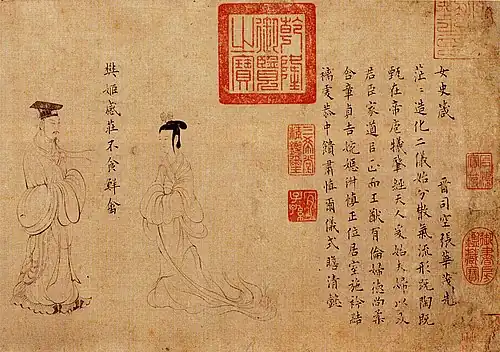 女史箴　晉司空張華茂先
茫〻造化二儀始分散氣流形既陶既
甄在帝庖犧肇經天人爰始夫婦以及
君臣家道㠯正而王猷有倫婦德尚柔
含章貞吉婉嫕淑慎正位居室施衿結
褵虔恭中饋肅慎爾儀式瞻清懿
乾隆御覽之寶
三希堂精鑑璽
宜子孫
樊姬感莊不食鮮禽